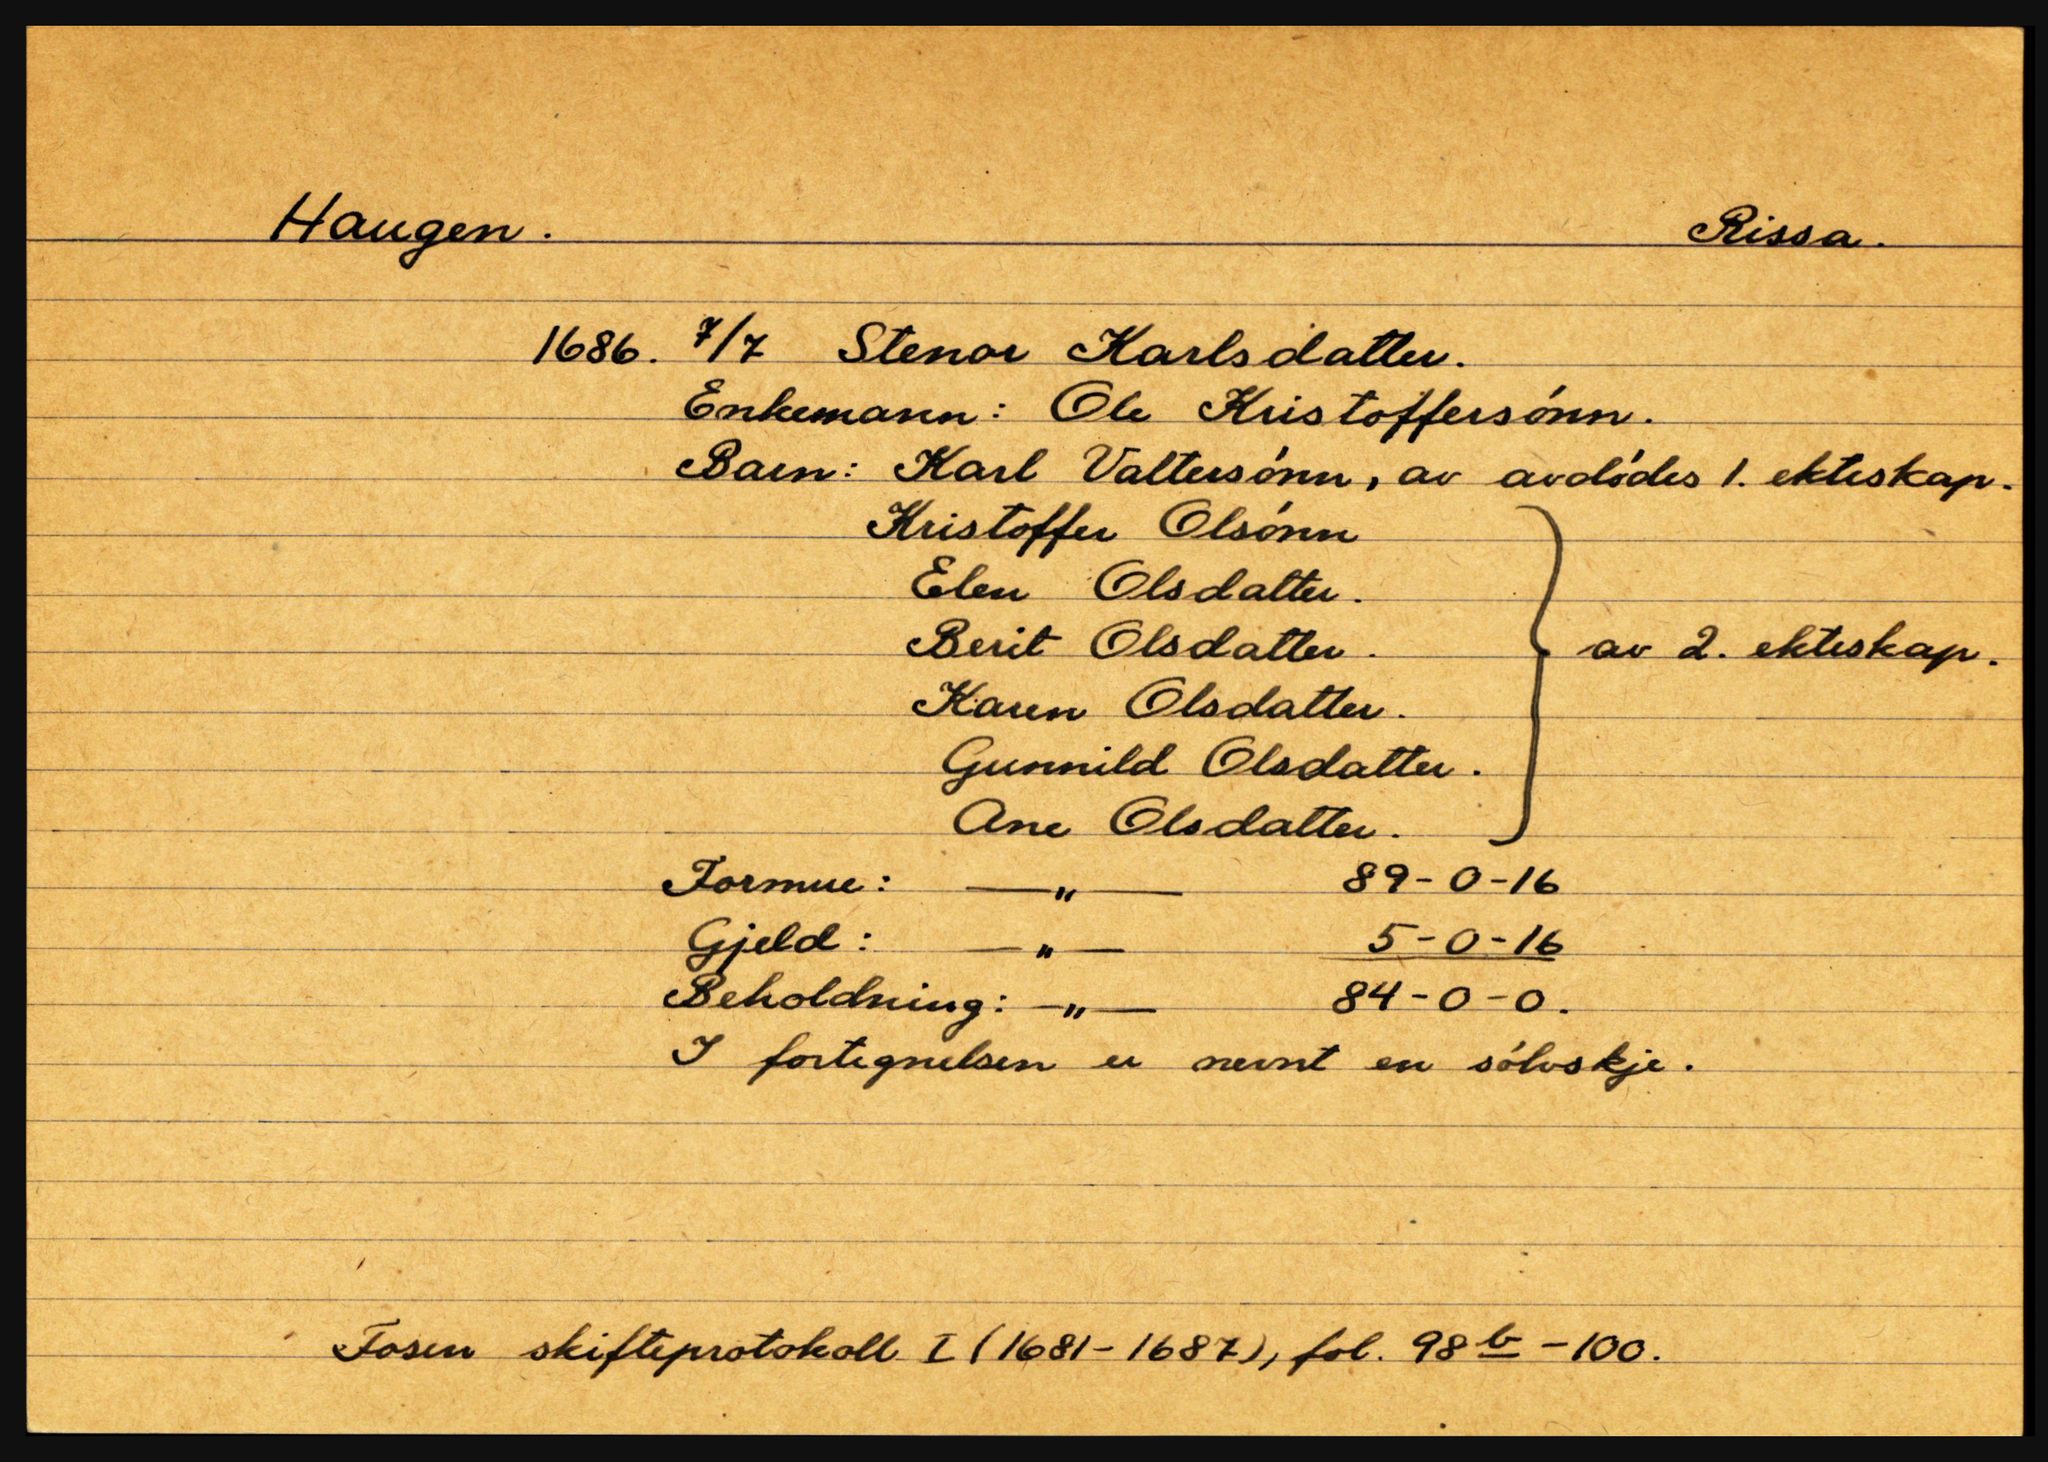 Haugen. Rissa.
1686. 7/7 Stenor Karlsdatter.
Enkemann: Ole Kristoffersónn.
Barn: Karl Valtersónn, av avdódes 1. ekteskap.
Kristoffer Olsónn
Elen Olsdatter.
Berit Olsdatter.
Karen Olsdatter.
Gunnild Olsdatter.
Ane Olsdatter.
av 2. ekteskap.
Formue: —"— 89-0-16
Gjeld: —"— 5-0-16
Beholdning: —"— 84-0-0.
I fortegnelsen er nevnt en sólvskje.
Fosen skifteprotokoll I (1681-1687), fol. 98b-100.